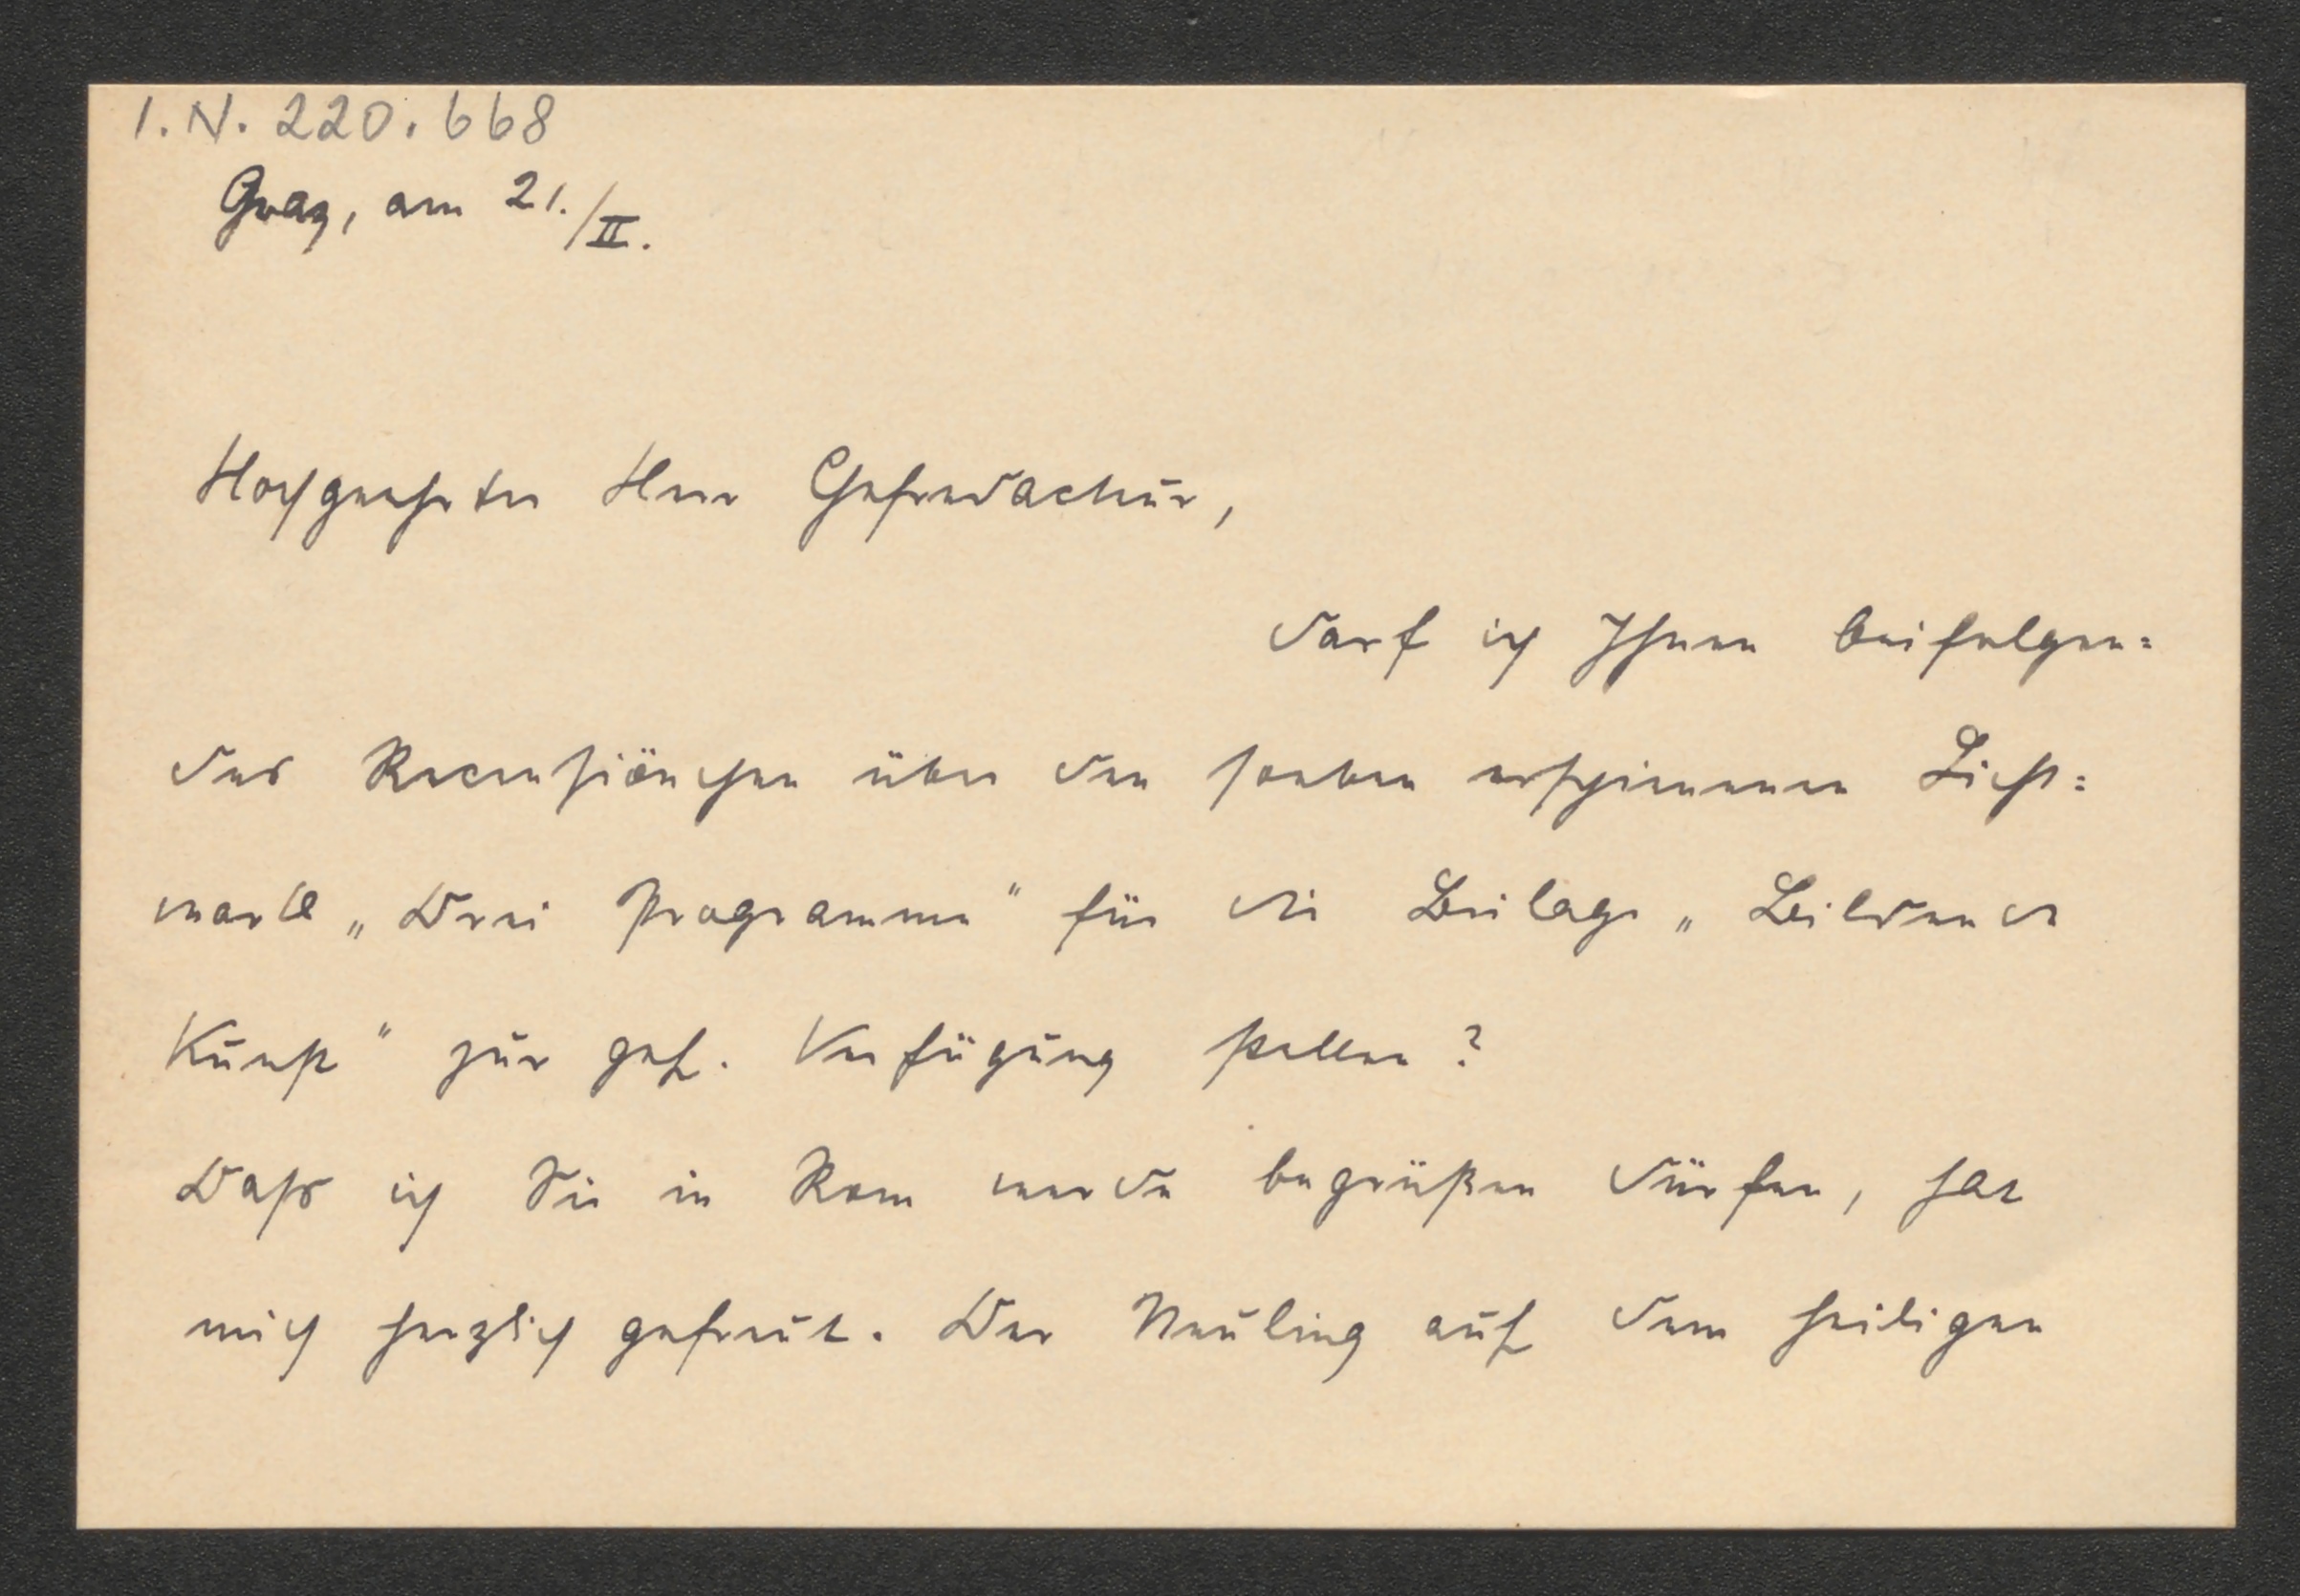 I.N. 220.668
Graz, am 21./II.
Hochgeehrter Herr Chefredacteur,
darf ich Ihnen beifolgen=
des Recensiönchen über den soeben erschienenen Licht=
wark „Drei Programme" für die Beilage „Bildende
Kunst" zur gef. Verfügung stellen?
Dass ich Sie in Rom werde begrüßen dürfen, hat
mich herzlich gefreut. Der Neuling auf dem heiligen